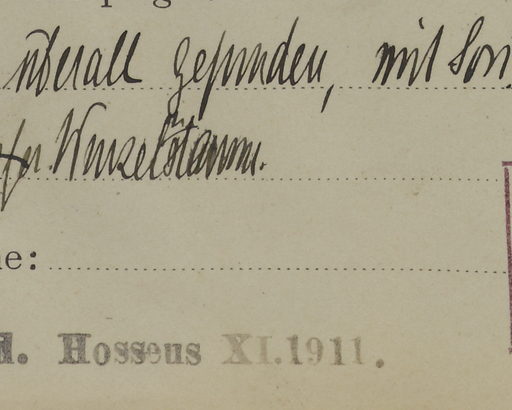 überall gefunden, mit
Wurzelstamm.
e:
d. Hosseus XI.1911.